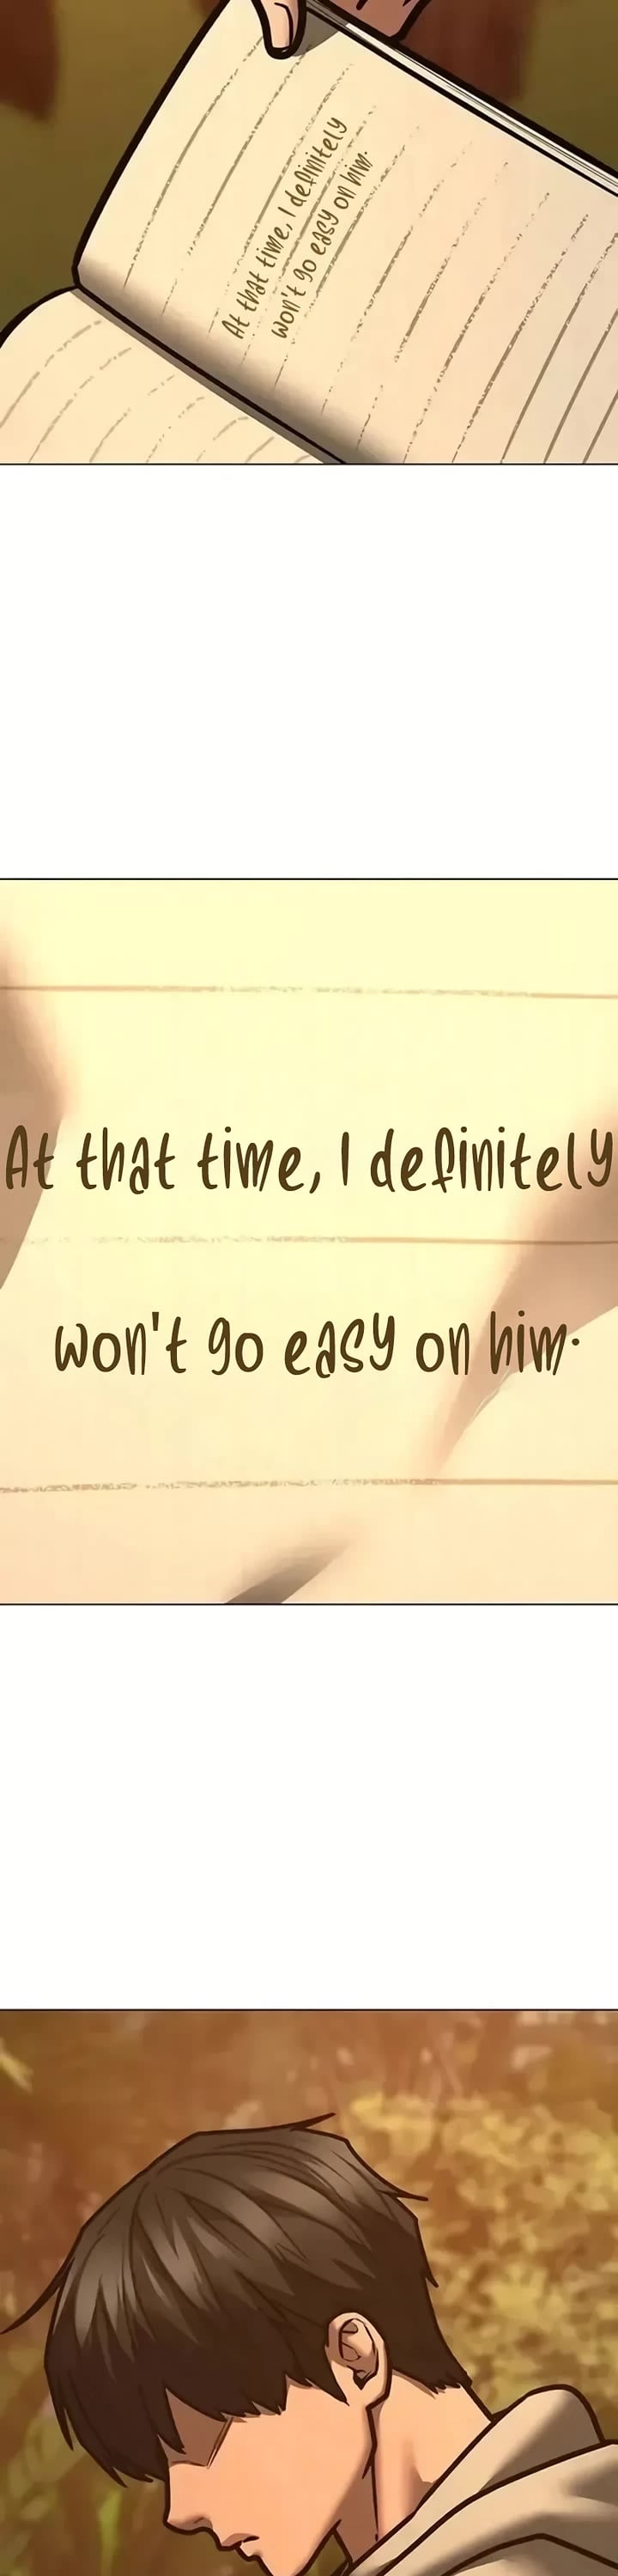 At that time, I definitely
won't go easy on him.
At that time, I definitely
won't go easy on him.